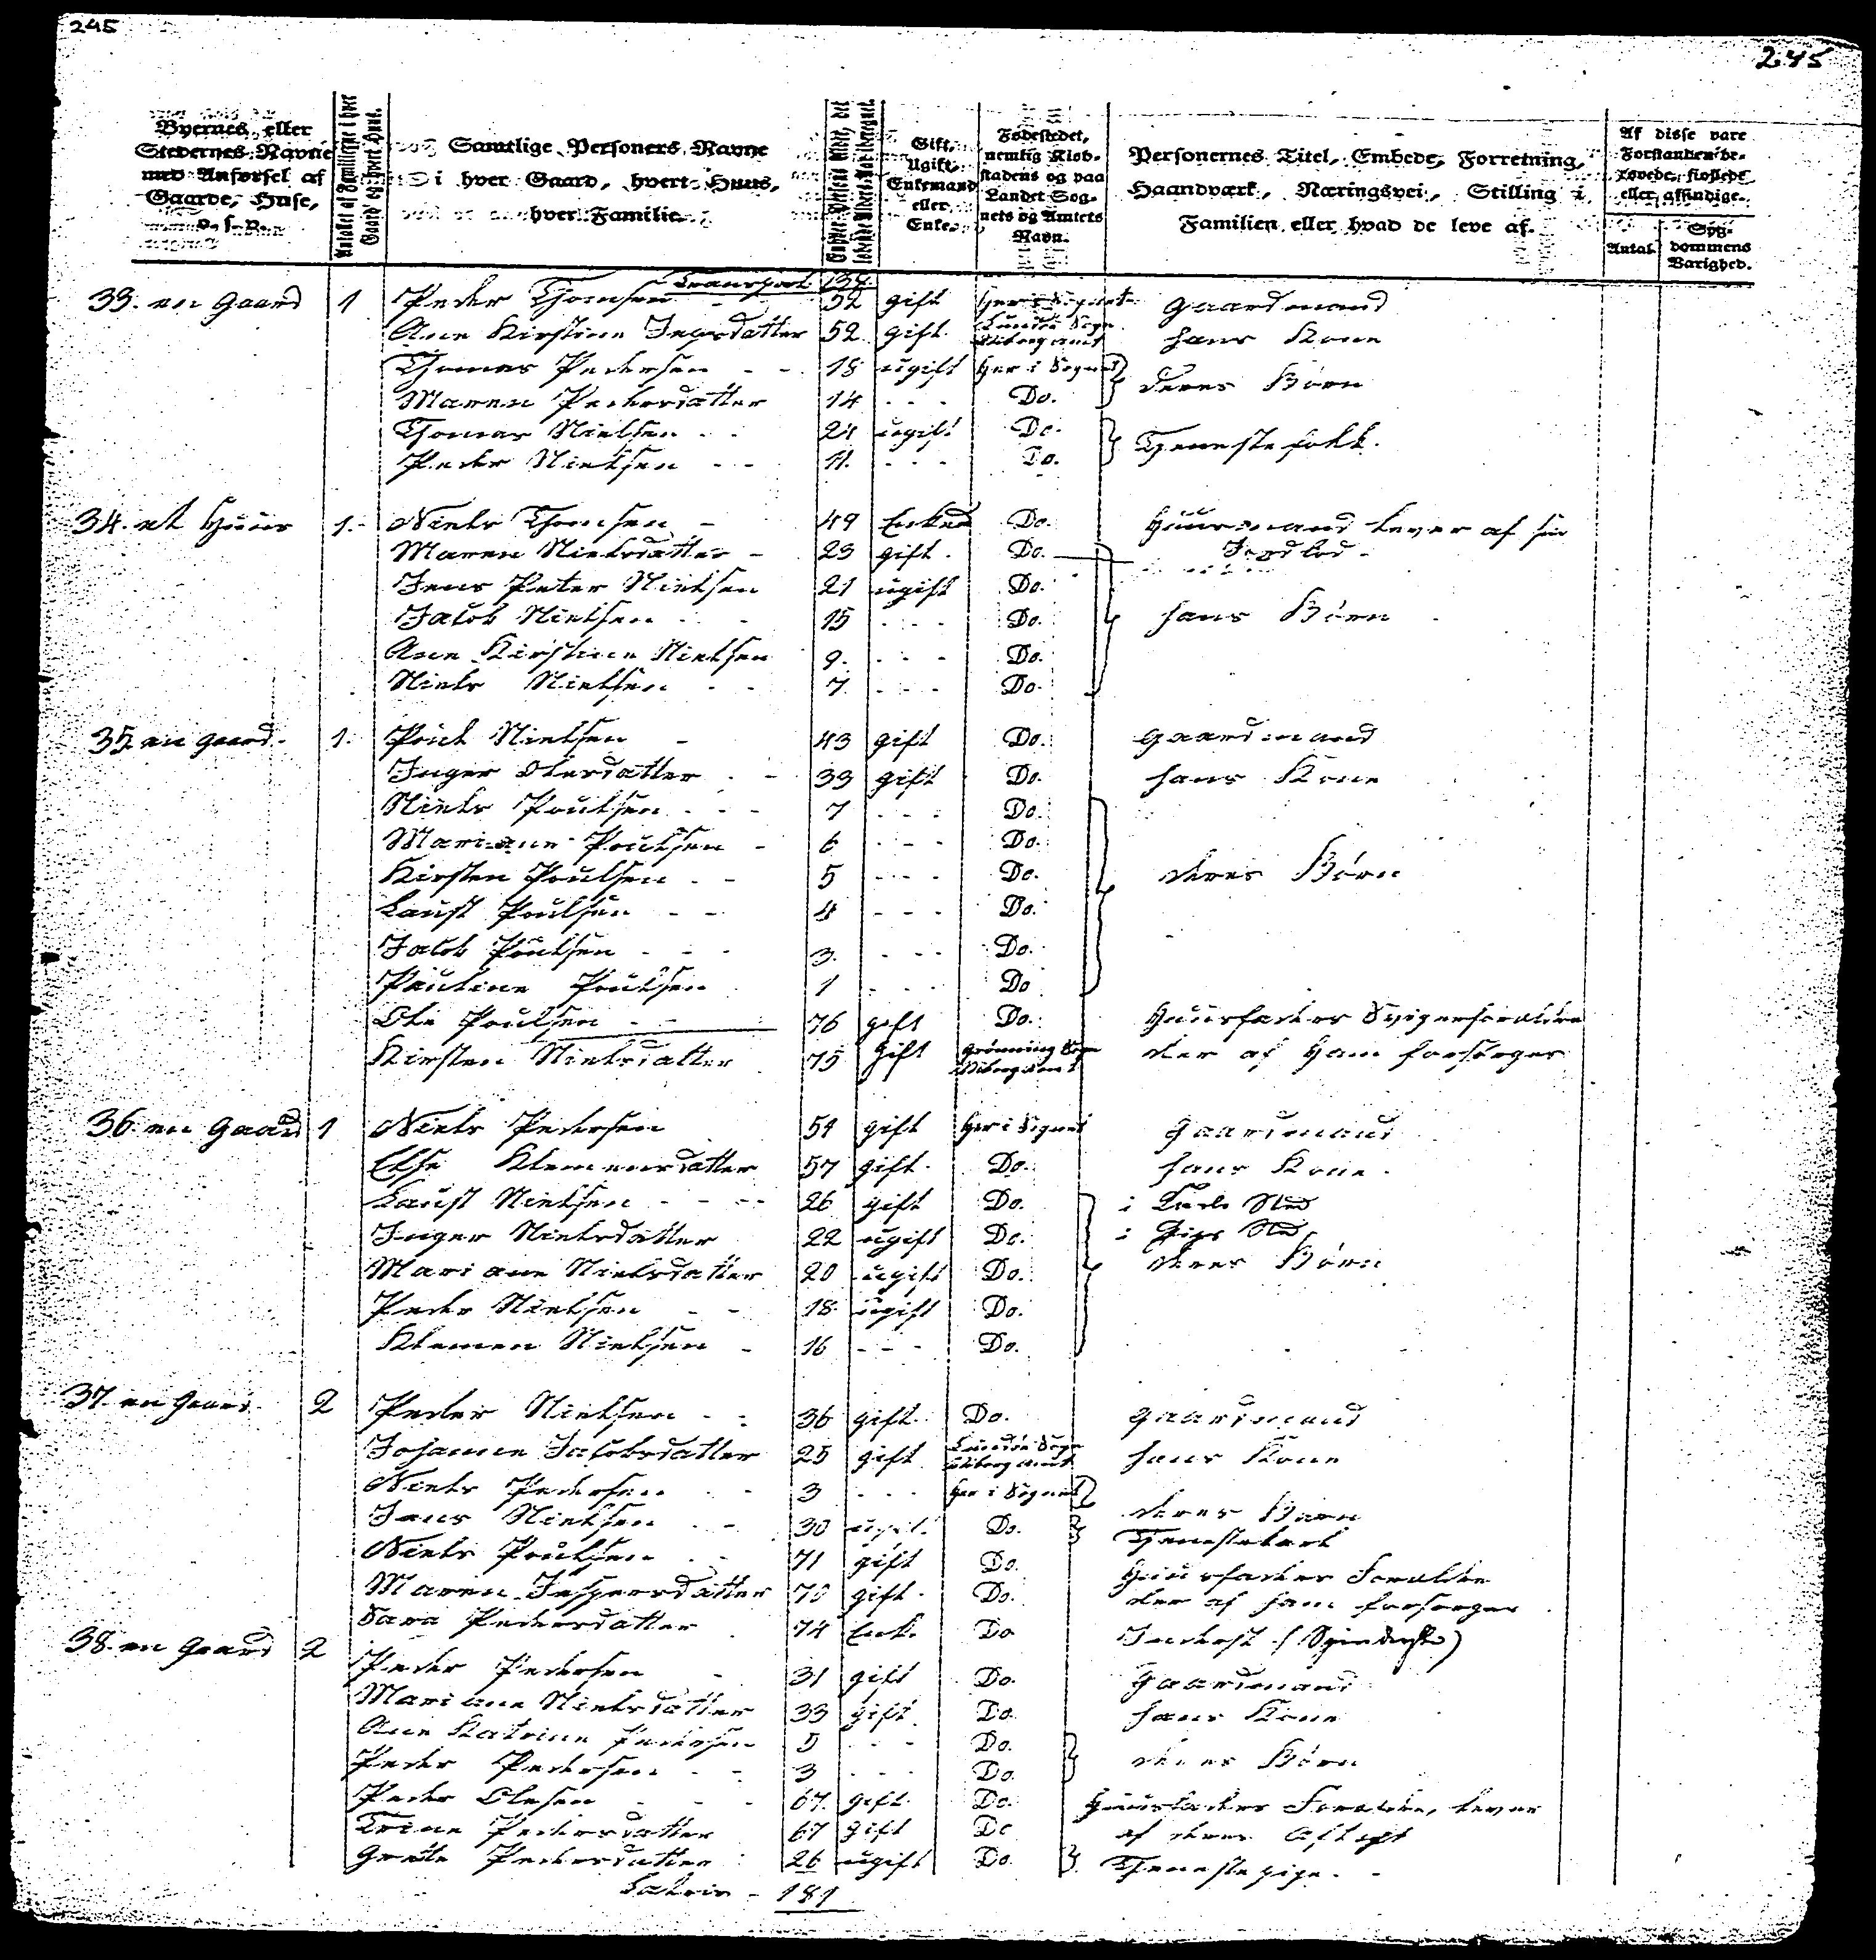 245
245
Byernes eller Stedernes Navne med Anførsel af Gaarde, Huse, o. s. v.
Antallet af Familierne i hver Gaard og hvert Huus.
Samtlige Personers Navne i hver Gaard, hvert Huus, hver Familie.
Gift, Ugift, Enkemand eller Enke.
Fødestedet, nemlig Kiøbstadens og paa Landet Sognets og Amtets Navn.
Personernes Titel, Embede, Forretning, Haandværk, Næringsvei, Stilling i Familien eller hvad de leve af.
Af disse vare Forstanden berøvede, fiollede eller afsindige.
Antal.
Sygdommens Varighed.
Transport 137
33. en Gaard 1 Peder Thomsen - 52 gift Her i Sognet Gaardmand
Ane Kirstine 52 gift Sogn Viborg amt hans Kone
Thomas Pedersen - - 18 ugift Her i Sognet } deres Børn
Maren Pedersdatter 14 - - - Do.
Thomas Nielsen - - 24 ugift Do. } Tjenestefolk.
Peder Nielsen - - 11. - - - Do.
34. et Huus 1. Niels Thomsen - 49 Do. Huusmand lever af sin
Maren Nielsdatter - 23 gift. Do. Jordlod -
Jens Peter Nielsen 21 ugift Do.
Jakob Nielsen - - 15 - - - Do. } hans Børn
Ane Kirstine Nielsen 9. - - - Do.
Niels Nielsen - - 7 - - - Do.
35. en gaard. 1. Poul Nielsen - 43 gift Do. Gaardmand
Inger Olesdatter - - 33 gift Do. hans Kone
Niels Poulsen - - - 7 - - - Do.
Mariane Poulsen - 6 - - - Do.
Kirsten Poulsen - - 5 - - - Do. } deres Børn
Laust Poulsen - - 4 - - - Do.
Jakob Poulsen - - - 3. - - - Do.
Pauline Poulsen 1 - - - Do
Ole Poulsen - - 76 gift Do. Huusfaders Svigerforældre
Kirsten Nielsdatter 75 Gift Grønning Sogn Viborg amt der af Ham forsørges
36. en Gaard 1 Niels Pedersen 54 gift Her i Sognet Gaardmand
Else Klemensdatter 57 gift. Do. hans Kone.
Laust Nielsen - - - - 26 gift Do. i Karls Sted
Inger Nielsdatter 22 ugift Do. i Piges Sted
Mariane Nielsdatter 20 ugift Do. } deres Børn
Peder Nielsen - - 18. ugift Do.
Klemen Nielsen - 16 - - - Do.
37. en Gaard. 2 Peder Nielsen - - 36 gift. Do. Gaardmand
Johanne Jakobsdatter 25 gift Sogn Viborg amt hans Kone
Niels Pedersen - - 3 - - - Her i Sognet } deres Barn
Jens Nielsen - - 30 ugift. Do. } Tjenestekarl
Niels Poulsen - - 71 gift Do. Huusfaders Forældre
Maren Jespersdatter 70 gift. Do. der af ham forsørges
Sara Pedersdatter 74 Enk. Do Inderst (Spinderske)
38. en Gaard 2 Peder Pedersen - 31 gift Do. Gaardmand
Mariane Nielsdatter 33 gift Do. hans Kone
Ane Katrine Pedersen 5 - - - Do. } deres Børn
Peder Pedersen - - 3 - - - Do.
Peder Olesen - - - 67. gift. Do. Huusfaders Forældre, lever
Trine Pedersdatter 67 gift Do af deres Aftægt
Grete Pedersdatter 26 ugift Do. } Tjenestepige. -
Lateris - 181